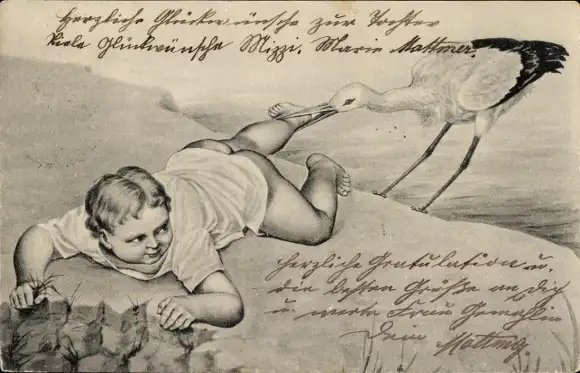 Herzliche Glückwünsche zur Tochter
Viele Glückwünsche Mizzi. Marie Mattmer.
Herzliche Gratulation u.
die besten Grüße an Dich
u. werte Frau Gemahlin
Dein